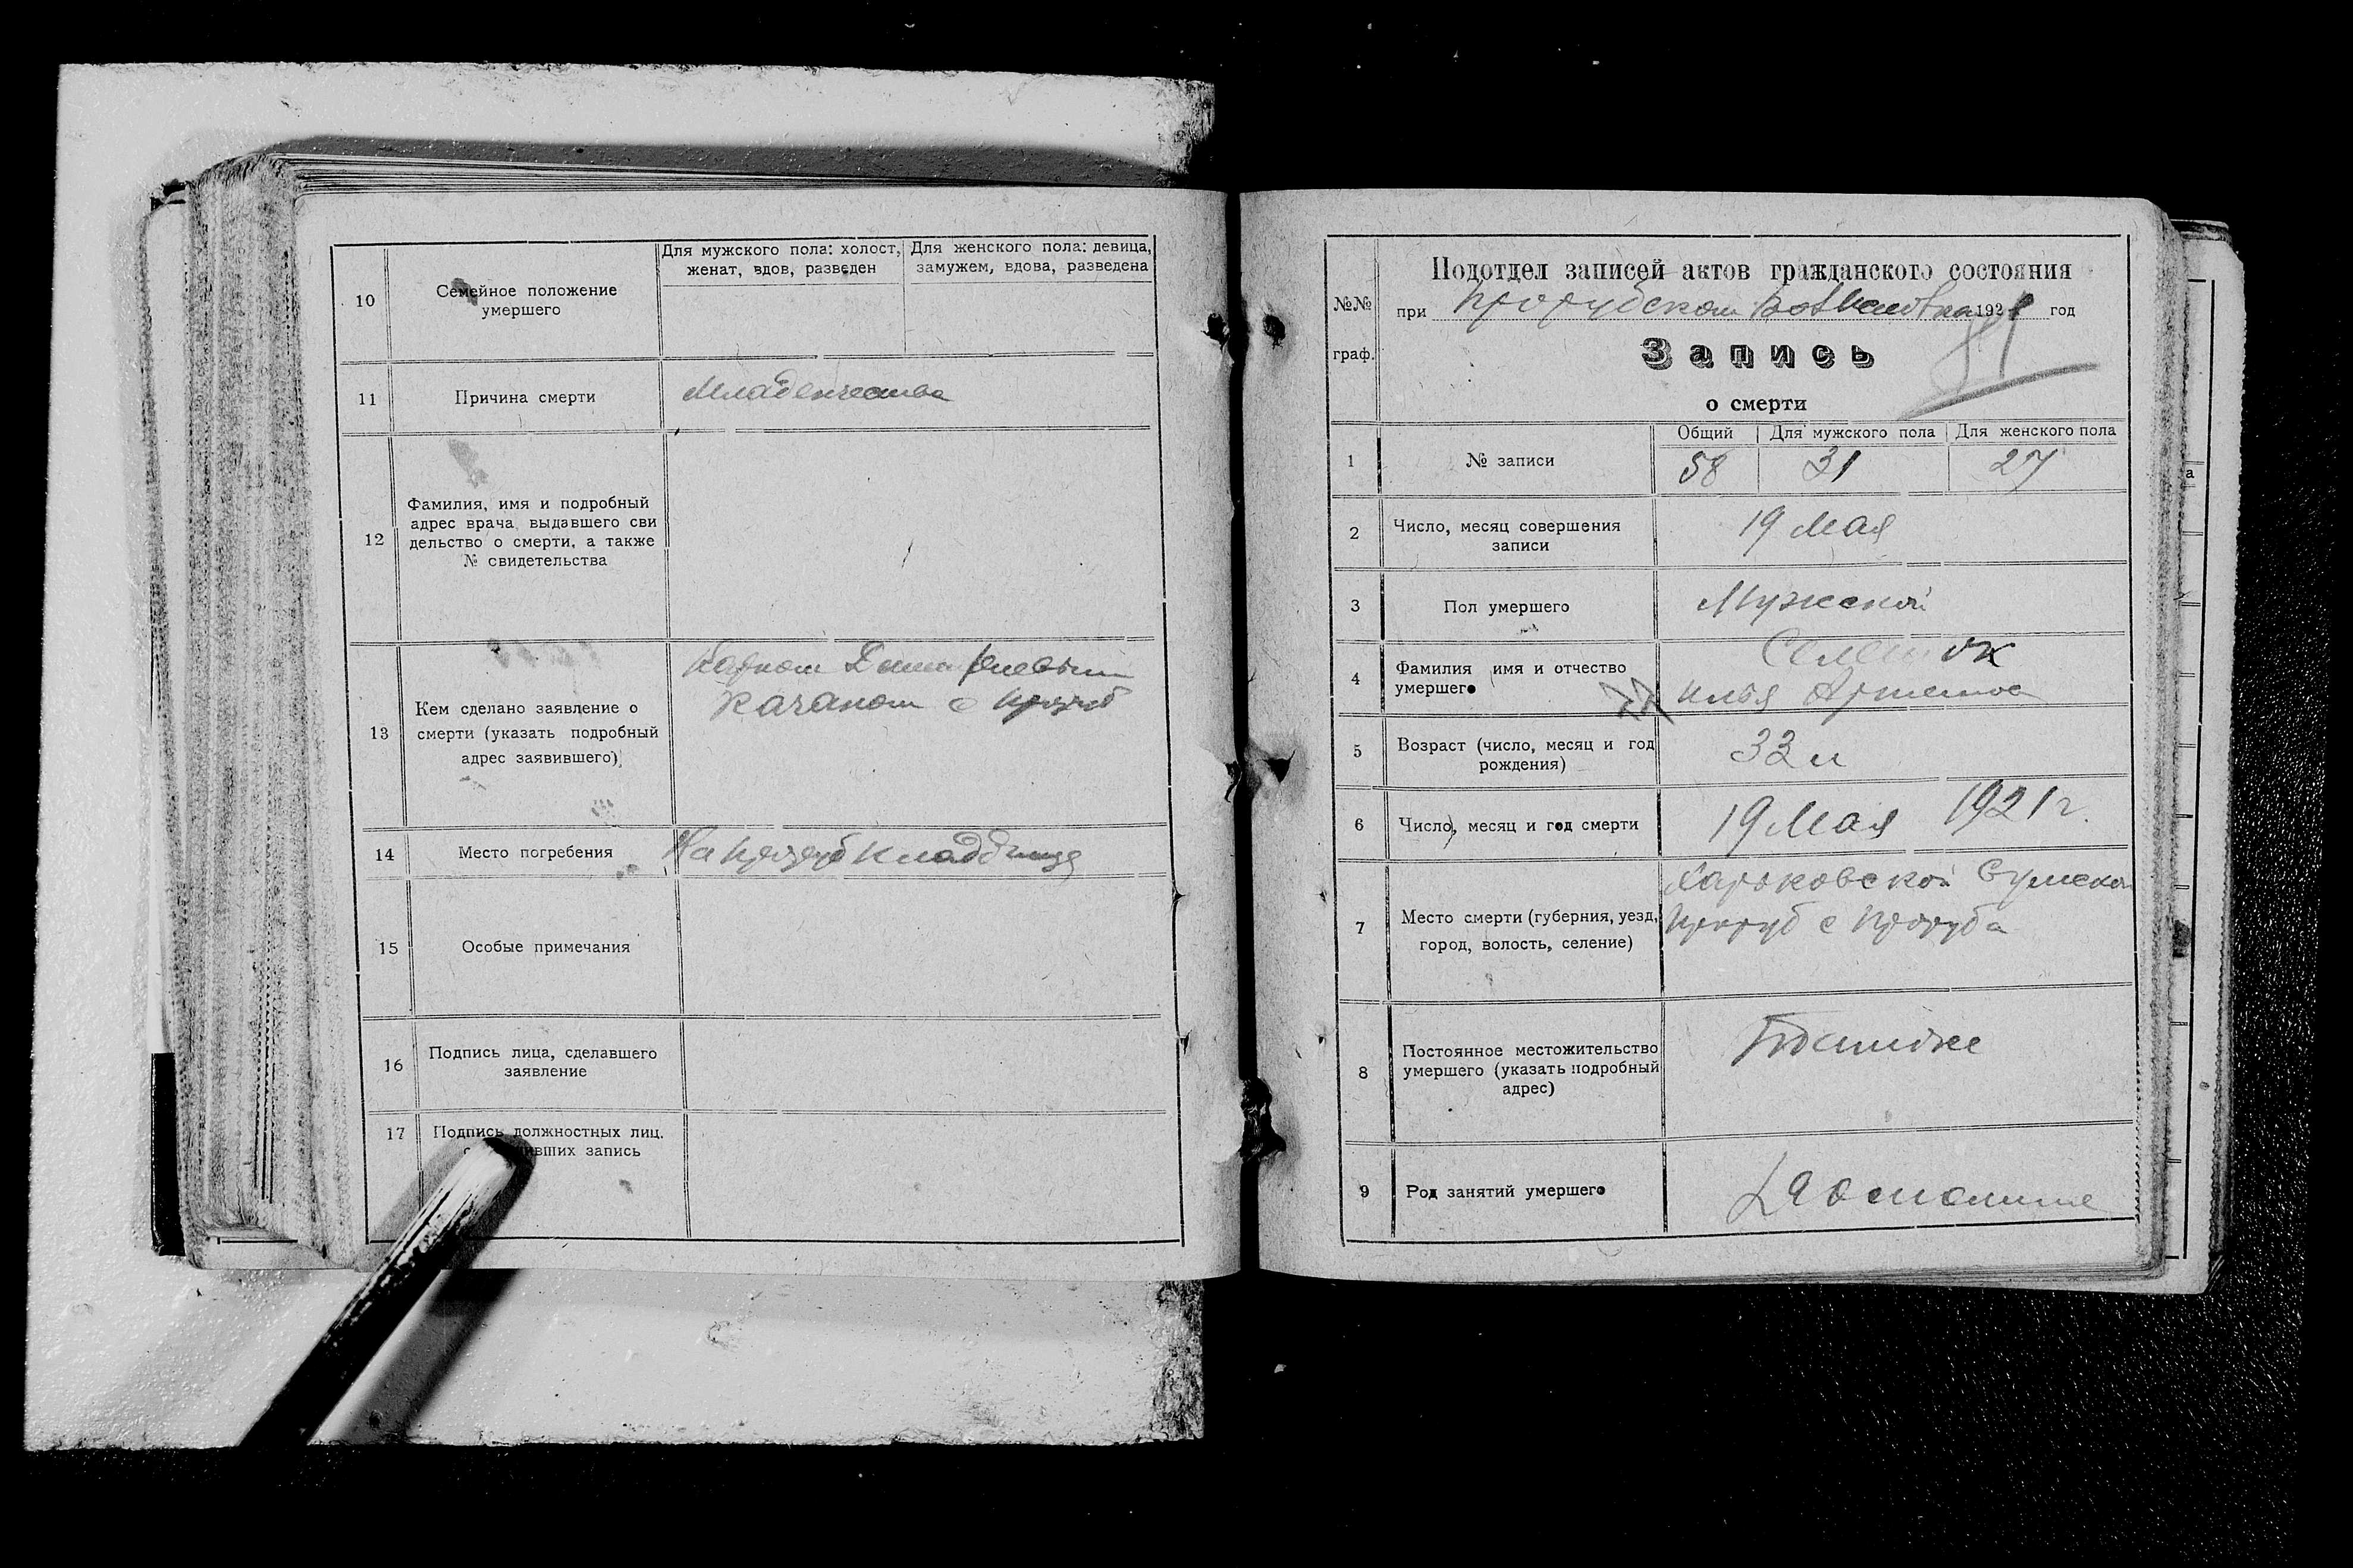 10
Семейное положение
умершего
Для мужского пола: холост,
женат, вдов, разведен
Для женского пола: девица,
замужем, вдова, разведена
11
Причина смерти
Младенчества
12
Фамилия, имя и подробный
адрес врача выдавшего сви
дельство о смерти, а также
№ свидетельства
13
Кем сделано заявление о
смерти (указать подробный
адрес заявившего)
Качаном с
14
Место погребения
На
15
Особые примечания
16
Подпись лица, сделавшего
заявление
17
Подпись должностных лиц.
запись
№№
граф.
Подотдел записей актов гражданского состояния
при 1921 год
Запись
о смерти
1
№ записи
Общий
Для мужского пола
Для женского пола
58
31
27
2
Число, месяц совершения
записи
19 Мая
3
Пол умершего
Мужской
4
Фамилия имя и отчество
умершего
Илья
5
Возраст (число, месяц и год
рождения)
33 л
6
Число, месяц и год смерти
19 Мая 1921 г.
7
Место смерти (губерния, уезд,
город, волость, селение)
Харьковской Сумской
Проруб с Проруба
8
Постоянное местожительство
умершего (указать подробный
адрес)
9
Род занятий умершего
а